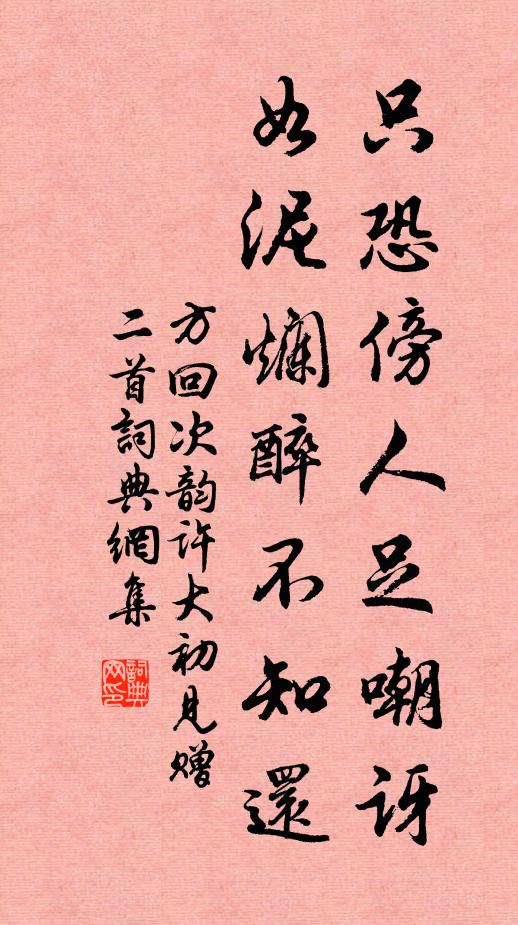 只恐傍人足嘲訝
如泥爛醉不知還
方回次韵许大初見贈
二首詞典網集
詞典
网印